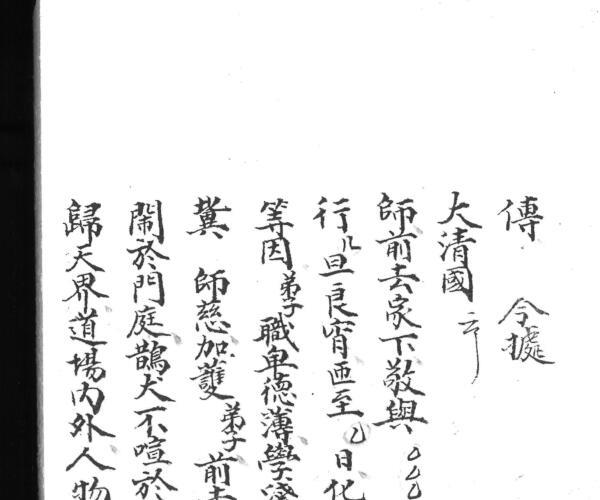 傳 今據
大清國云
師前去家下敬與
行几旦良宵匝至 日化
等因弟子職卑德薄學淺
冀 師慈加護弟子前去
鬧於門庭鵲犬不喧於
歸天界道場内外人物